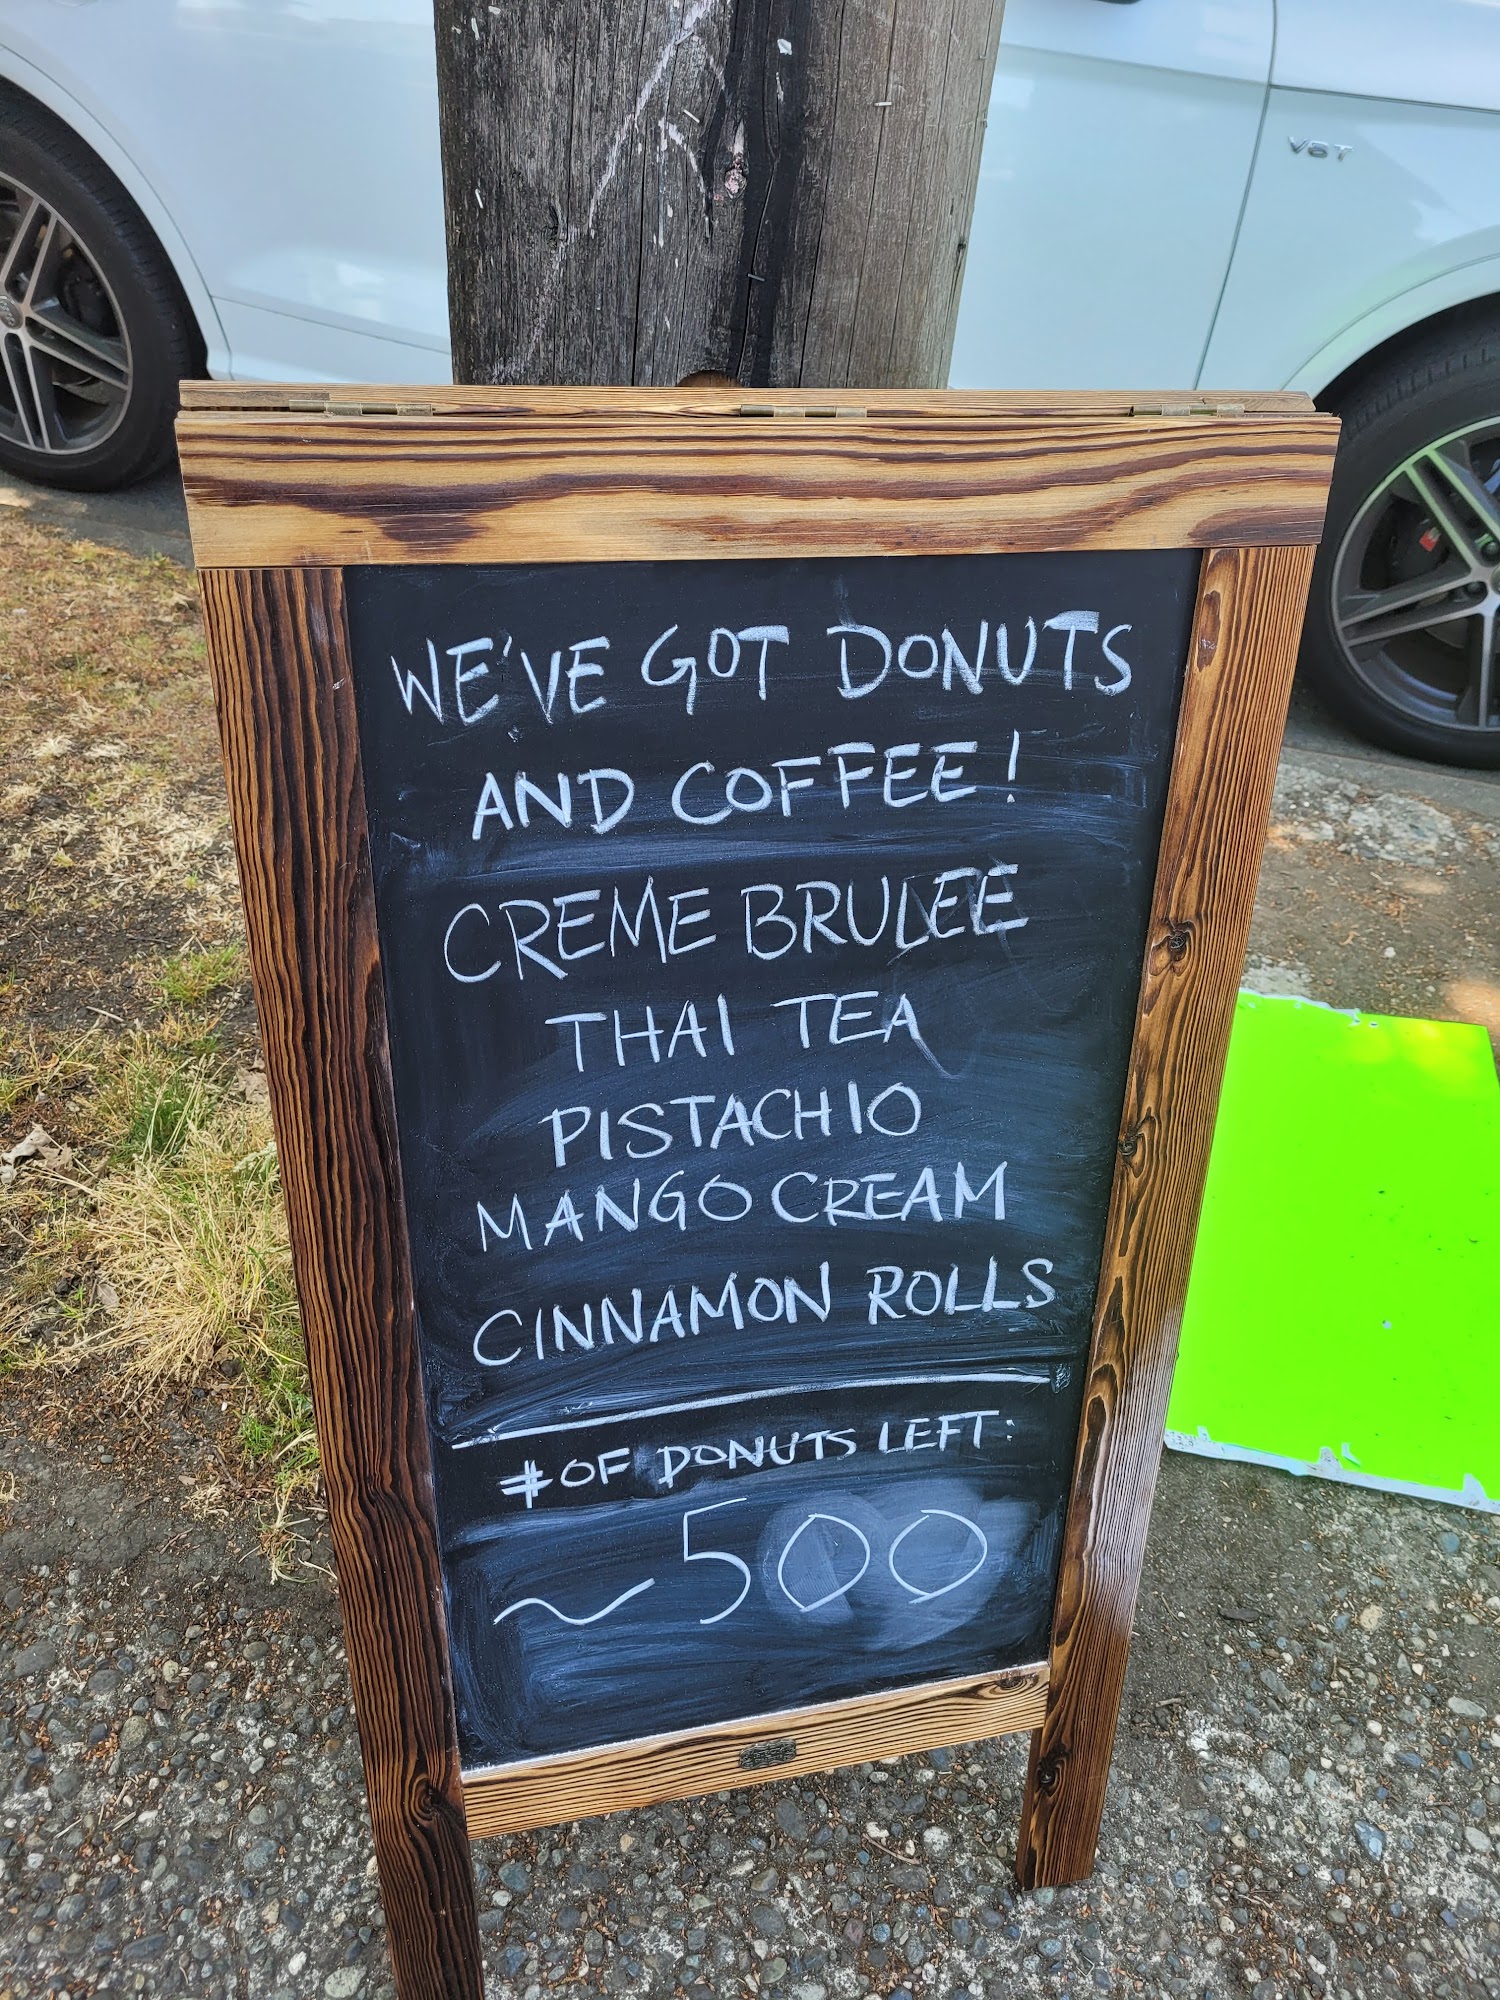 V6T
WE'VE GOT DONUTS
AND COFFEE!
CREME BRULEE
THAI TEA
PISTACHIO
MANGO CREAM
CINNAMON ROLLS
# OF DONUTS LEFT:
~500